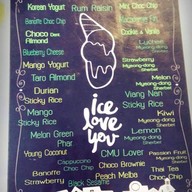 Korean Yogurt
Rum Raisin
Mint Choc Chip
Banoffe Choc Chip
Choco Dark
Almond
Cookie & Vanilla
Blueberry Cheese
Lychee
Myeong-dong
Sherbet
Mango Yogurt
Taro Almond
Strawberry
Myeong-dong
Sherbet
Durian
Sticky Rice
Melon
Myeong-dong
Sherbet
Viang Nan
Sticky Rice
Mango
Sticky Rice
ice
love
you
Kiwi
Myeong-dong
Sherbet
Melon Green
Phat
Lemon
Myeong-dong
Sherbet
Young Coconut
CMU Lover
Passion Fruit
Myeong-dong
Sherbet
Cappuccino
Choc Chip
Choco Brownie
Banoffe
Strawberry
Peach Melba
Thai Tea
Choc Chip
Black Sesame